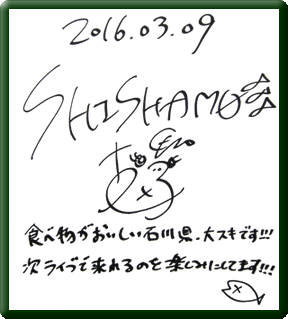 2016.03.09
SHISHAMO
食べ物がおいしい石川県、大スキです!!!
次ライブで来れるのを楽しみにしてます!!!